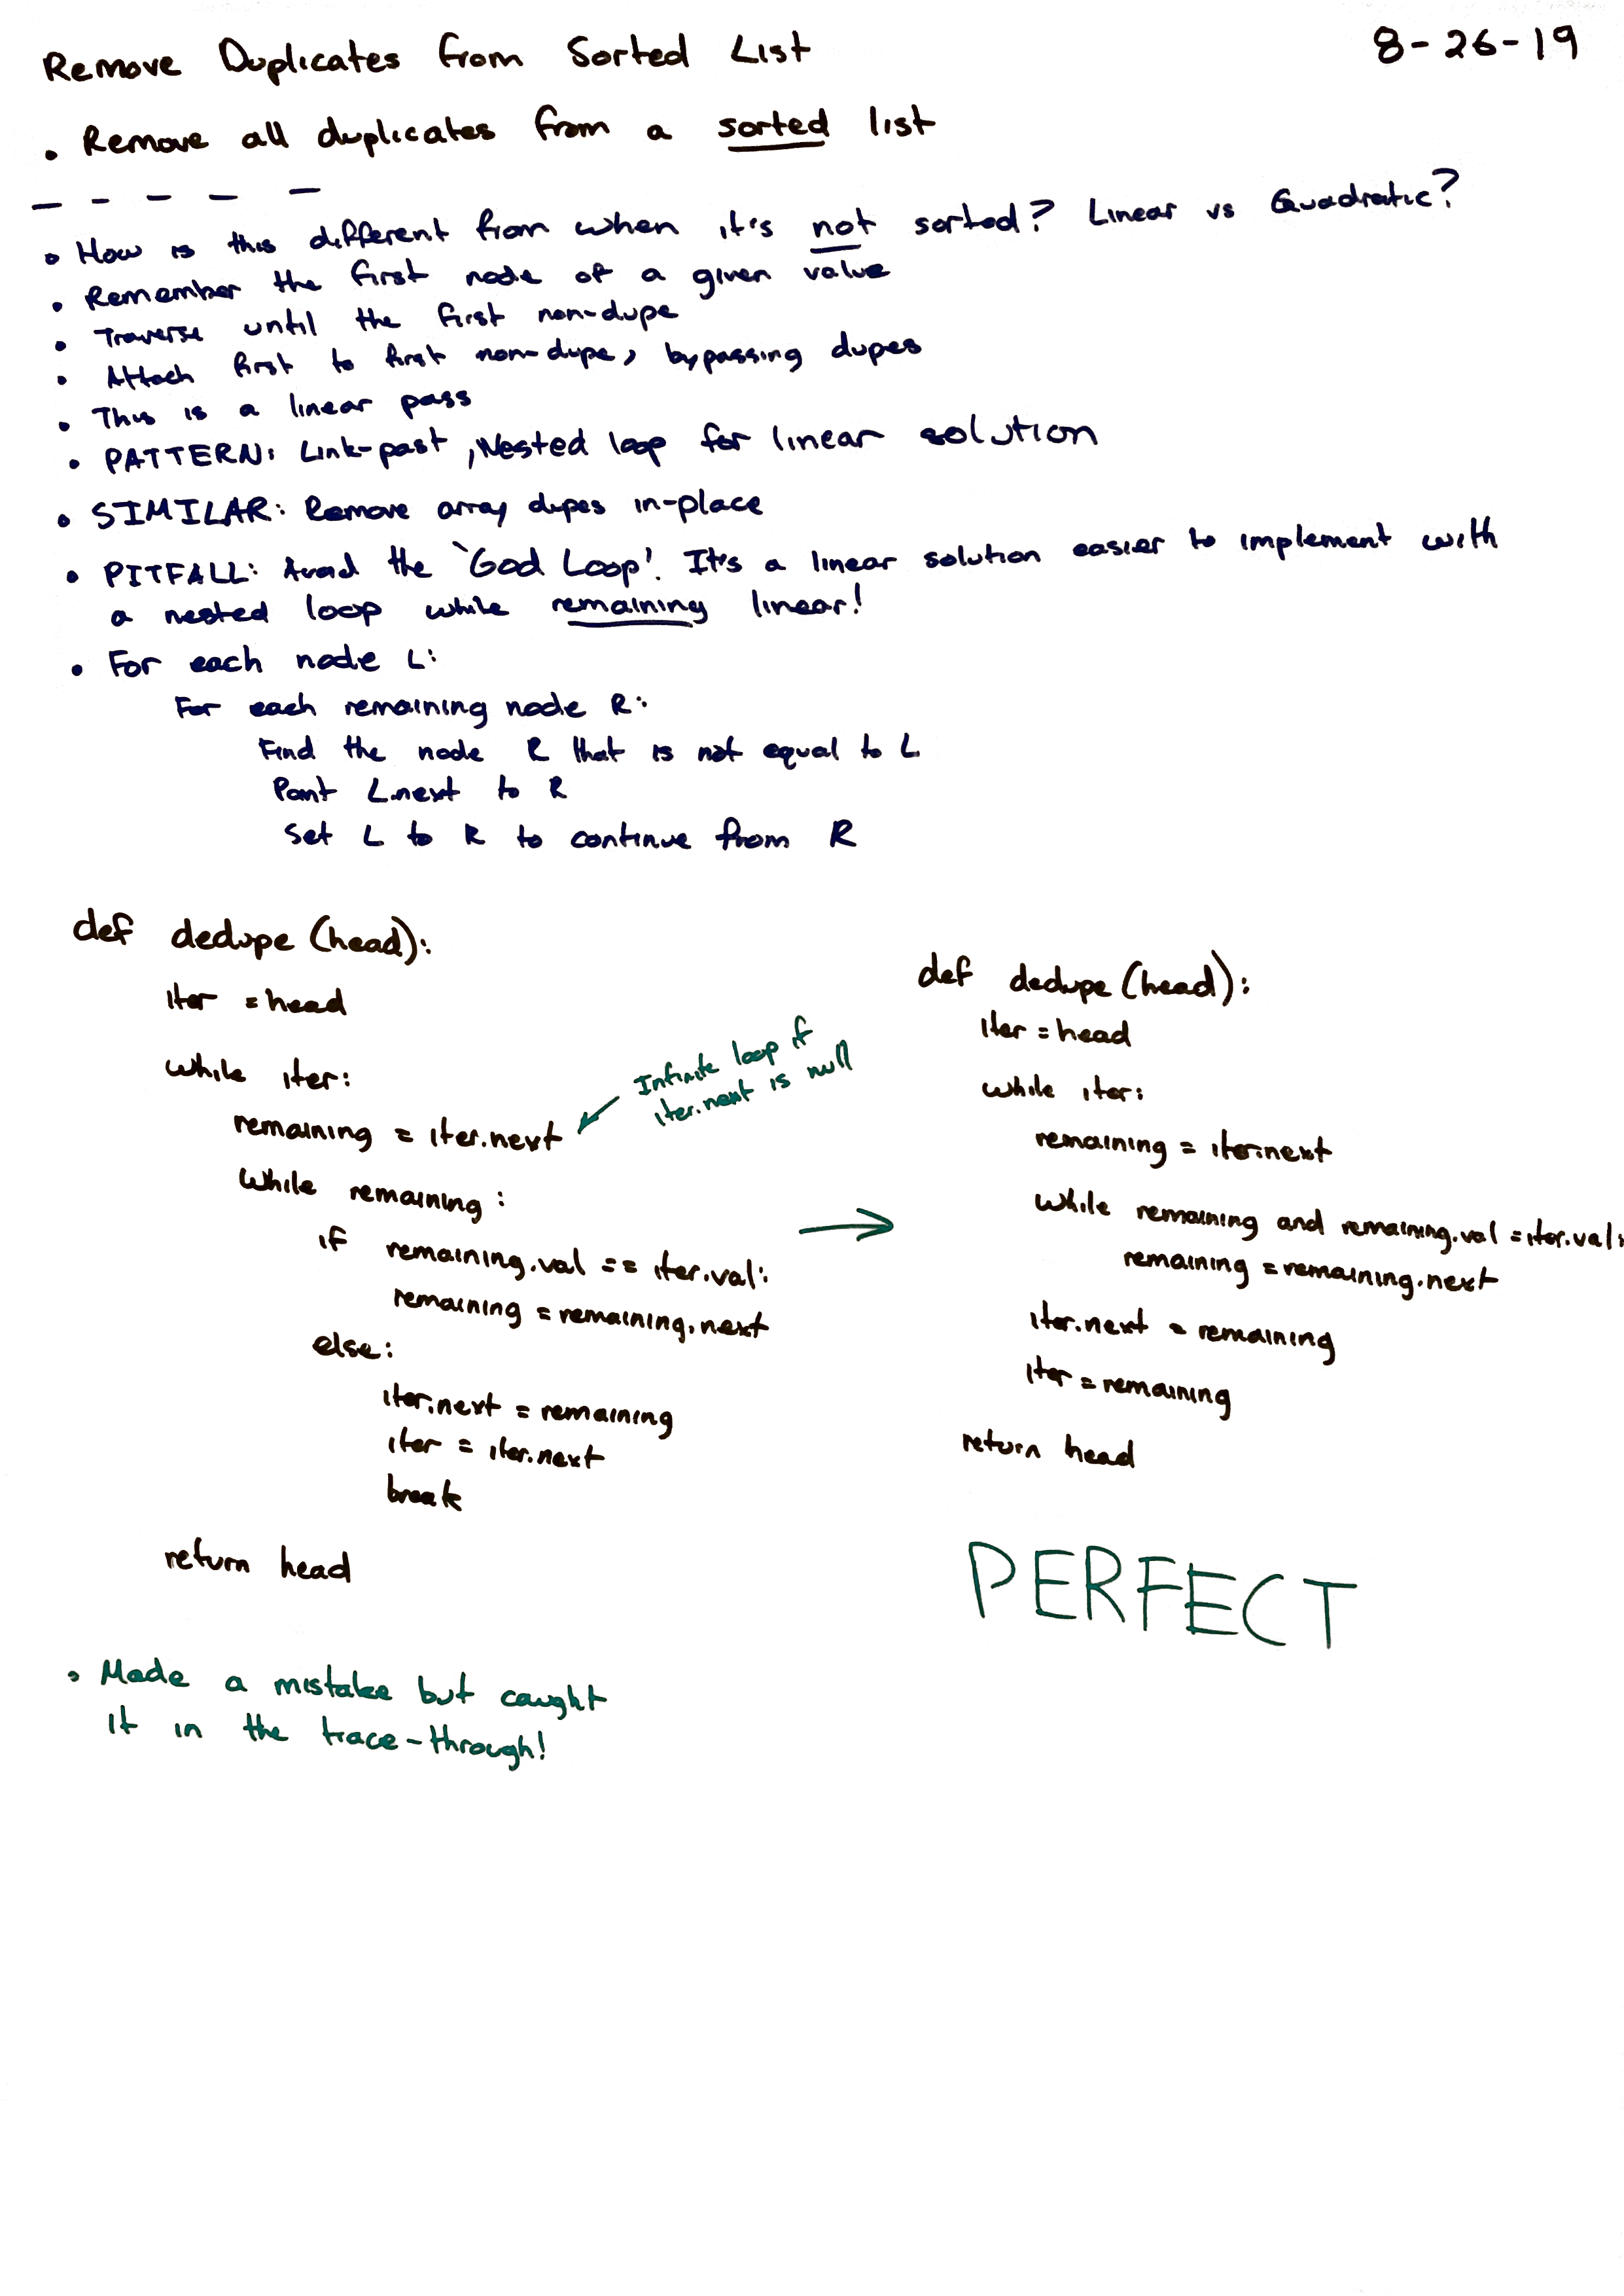 Remove Duplicates from Sorted List
8-26-19
• Remove all duplicates from a sorted list
– – – – –
• How is this different from when it's not sorted? Linear vs Quadratic?
• Remember the first node of a given value
• Traverse until the first non-dupe
• Attach first to first non-dupe, bypassing dupes
• This is a linear pass
• PATTERN: Link-past, Nested loop for linear solution
• SIMILAR: Remove array dupes in-place
• PITFALL: Avoid the 'God Loop'. It's a linear solution easier to implement with
a nested loop while remaining linear!
• For each node L:
For each remaining node R:
Find the node R that is not equal to L
Point L.next to R
Set L to R to continue from R
def dedupe(head):
iter = head
while iter:
remaining = iter.next
Infinite loop if
iter.next is null
while remaining:
if remaining.val == iter.val:
remaining = remaining.next
else:
iter.next = remaining
iter = iter.next
break
return head
• Made a mistake but caught
it in the trace-through!
def dedupe(head):
iter = head
while iter:
remaining = iter.next
while remaining and remaining.val = iter.val:
remaining = remaining.next
iter.next = remaining
iter = remaining
return head
PERFECT